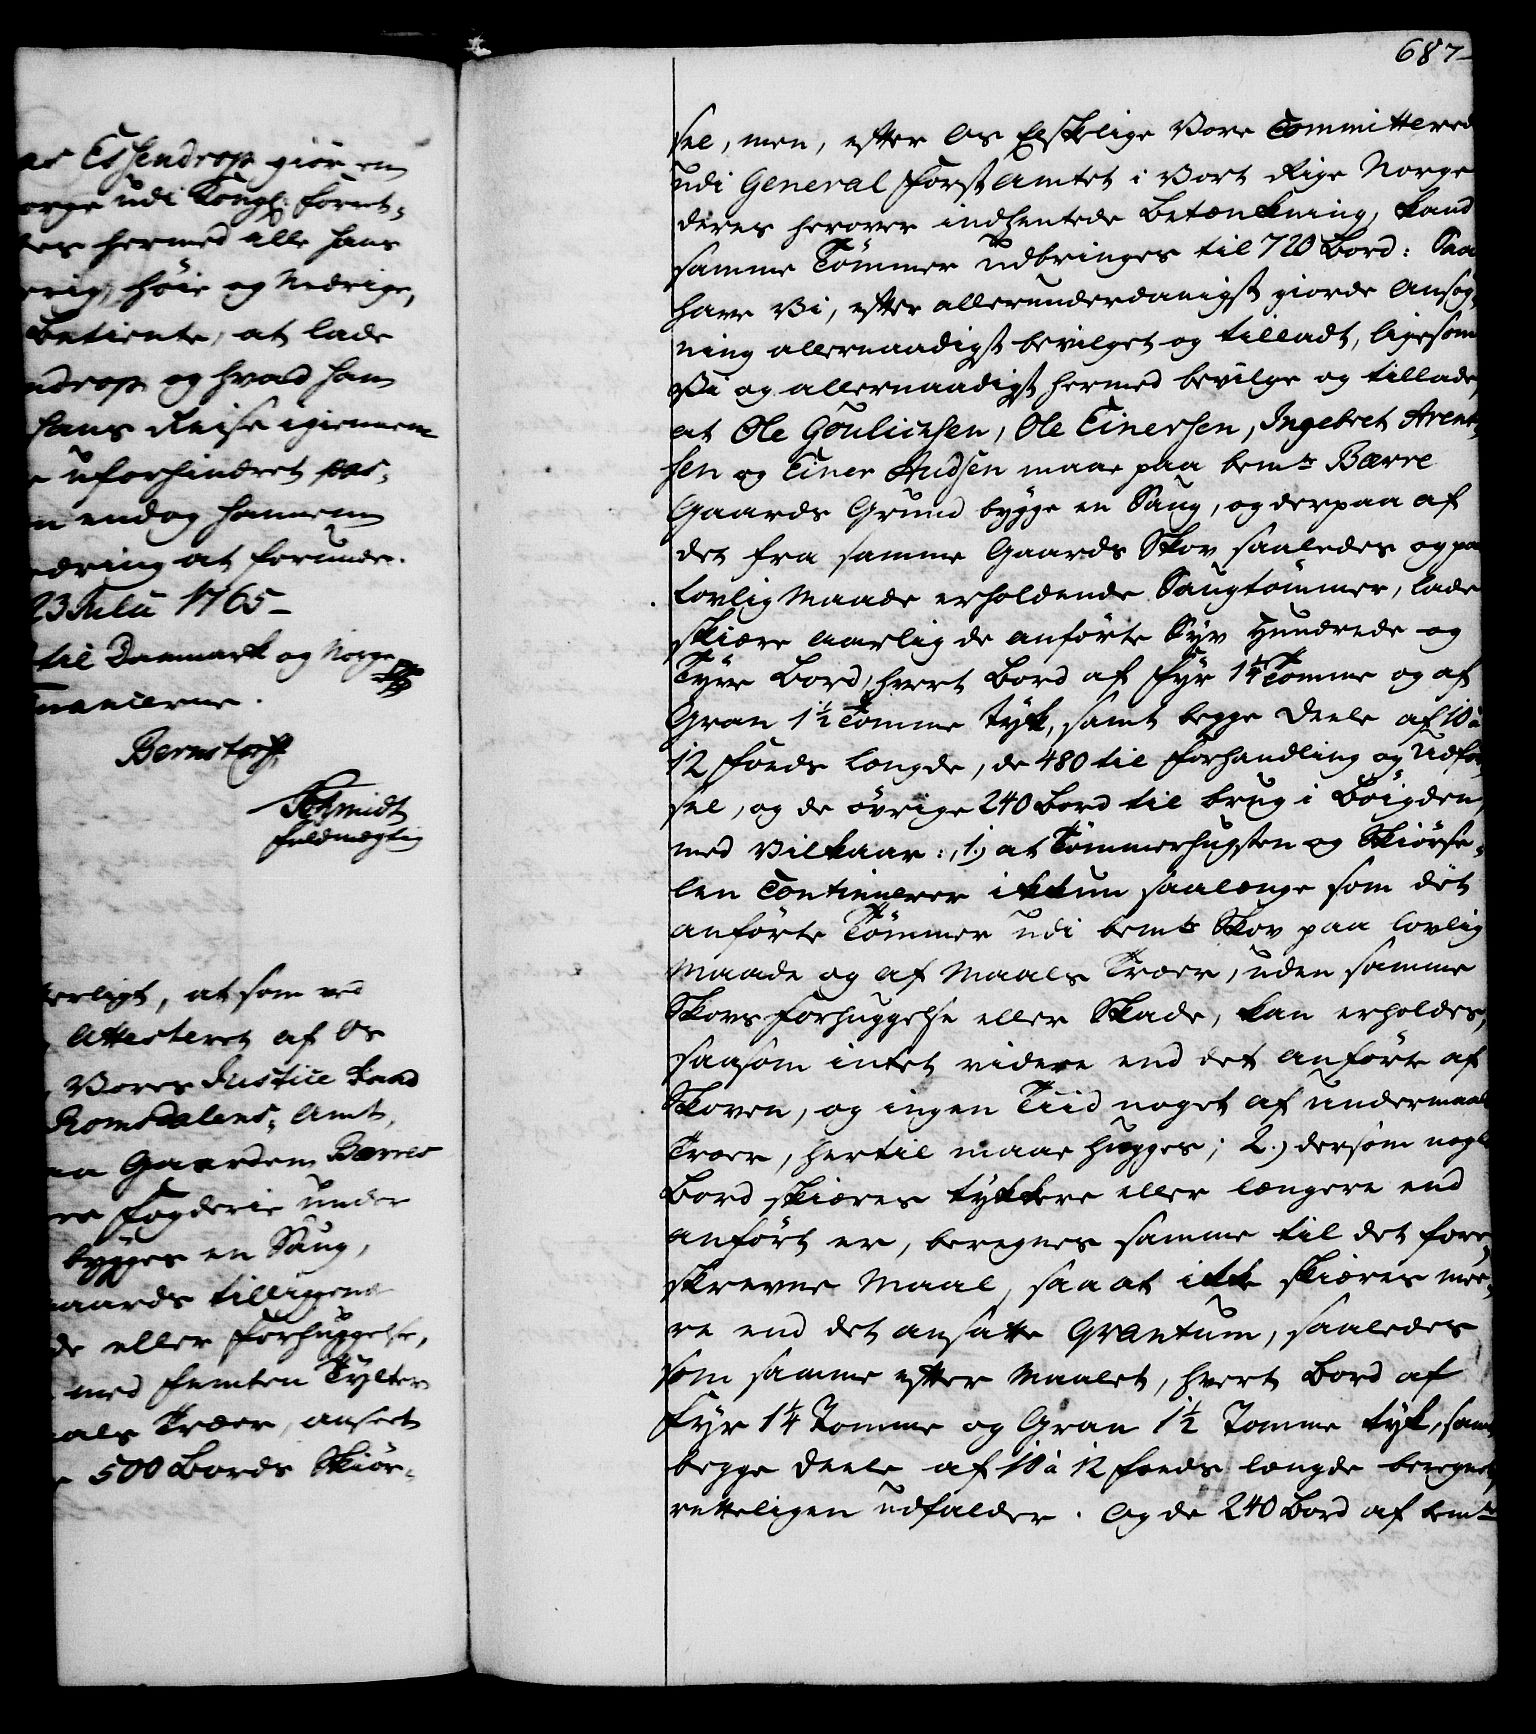 as Essendrop giör en
orge udi Kongl: Forret-
tes hermed alle hans
erig, höie og Nedrige,
Betiente, at lade
ndrop og hvad han
hans Reise igiennem
e uforhindret pas-
n endog hannem
dring at forunde.
23 Julii 1765
til Danmark og Norge
Financerne.
Bernstorff
Schmidt
fuldmægtig
terligt, at som ved
Attesteret af Os
Vores Justice Raad
Romsdalens Amt,
aa Gaarden Bærres
re Fogderie under
bygges en Saug,
aards tilliggende
de eller Forhuggelse,
med femten Tylter
als Træer, anseet
e 500 Bords Skiör-
687
sel, men, efter Os Elskelige Vore Committered
udi General Forst Amtet i Vort Rige Norge
deres herover indhentede Betænkning, kand
samme Tömmer udbringes til 720 Bord: Saa
have Vi, efter allerunderdanigst giorde Ansög-
ning allernaadigst bevilget og tilladt, ligesom
Vi og allernaadigst hermed bevilge og tillade,
at Ole Goulichsen, Ole Einersen, Ingebret Arent-
sen og Einer Audsen maae paa bemte Bærre
Gaards Grund bygge en Saug, og derpaa af
det fra samme Gaards Skov saaledes og paa
Lovlig Maade erholdende Saugtömmer, lade
skiære Aarlig de anförte Syv Hundrede og
Tyve Bord, hvert Bord af Fyr 1¼ Tomme og af
Gran 1½ Tomme tyk, samt begge Deele af 10 à
12 Foeds Længde, de 480 til Forhandling og Udför-
sel, og de övrige 240 Bord til brug i Böigden,
med Vilkaar: 1.) at Tömmerhugsten og Skiörse-
len Continuerer ikkun saalænge som det
anförte Tömmer udi bemte Skov paa lovlig
Maade og af Maals Træer, uden samme
Skovs Forhuggelse eller Skade, kan erholdes,
saasom intet videre end det anförte af
Skoven, og ingen Tiid noget af undermaals
Træer, hertil maae hugges; 2.) dersom nogle
Bord skiæres tykkere eller længere end
anfört er, beregnes samme til det fore-
skrevne Maal, saa at ikke skiæres mee-
re end det ansatte Qvantum, saaledes
som samme efter Maalet, hvert Bord af
Fyr 1¼ Tomme og Gran 1½ Tomme tyk, samt
begge Deele af 10 à 12 Foeds længde beregnet,
retteligen udfalder. Og de 240 Bord af bemte